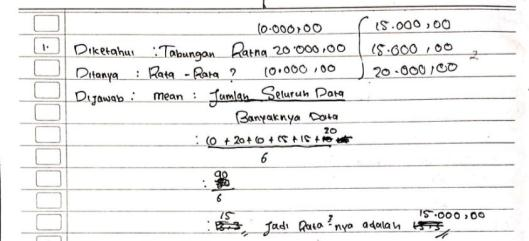 10.000,00 15.000,00
1. Diketahui : Tabungan Ratna 20.000,00 15.000,00
Ditanya : Rata - Rata ? 10.000,00 20.000,00
Dijawab : mean : Jumlah Seluruh Data
Banyaknya Data
: 10 + 20 + 10 + 15 + 15 + 20
6
: 90
6
: 15 Jadi Rata²nya adalah 15.000,00